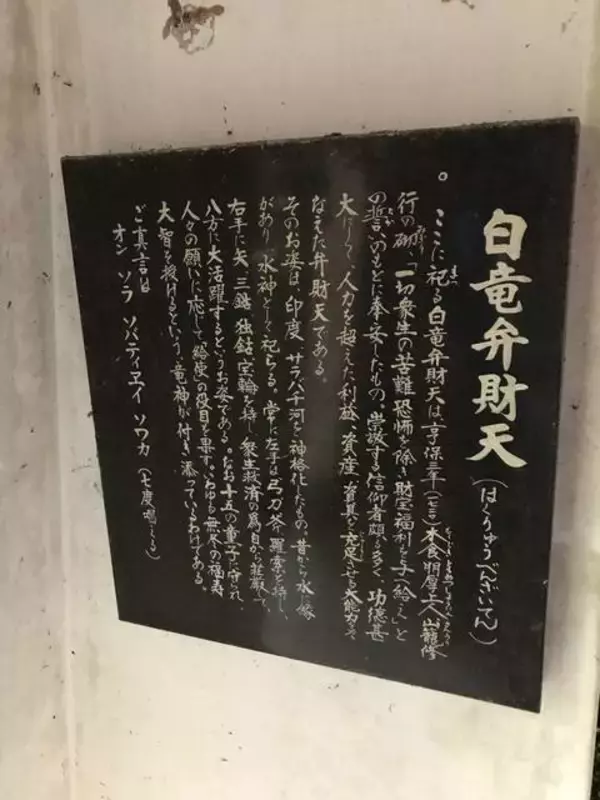 白竜弁財天(はくりゅうべんざいてん)
。ここに祀る白竜弁財天は、享保三年 木食明厚上人山籠修
まつ
行の砌、一切衆生の苦難恐怖を除き財宝福利を与へ給ふ」と
の誓いのもとに奉安したもの、崇敬する信仰者頗る多く、功徳甚
大にして人力を超えた利益、資産、資具を充足させる大能力をそ
なえた弁財天である。
そのお姿は、印度サラバチ河を神格化したもの。昔から水に縁
があり、水神として祀らる。常に左手は弓刀斧、羂索を持し、
右手に矢、三鈷、独鈷、宝輪を持し、衆生救済の為自から荘厳して
八方に大活躍するというお姿である。なお十五の童子に守られ、
人々の願いに応じて給使の役目を果す。いわゆる無尽の福寿
大智を授けるという、竜神が付き添っているわけである。
ご真言は
オン ソラ ソバティエイ ソワカ(七度唱える)